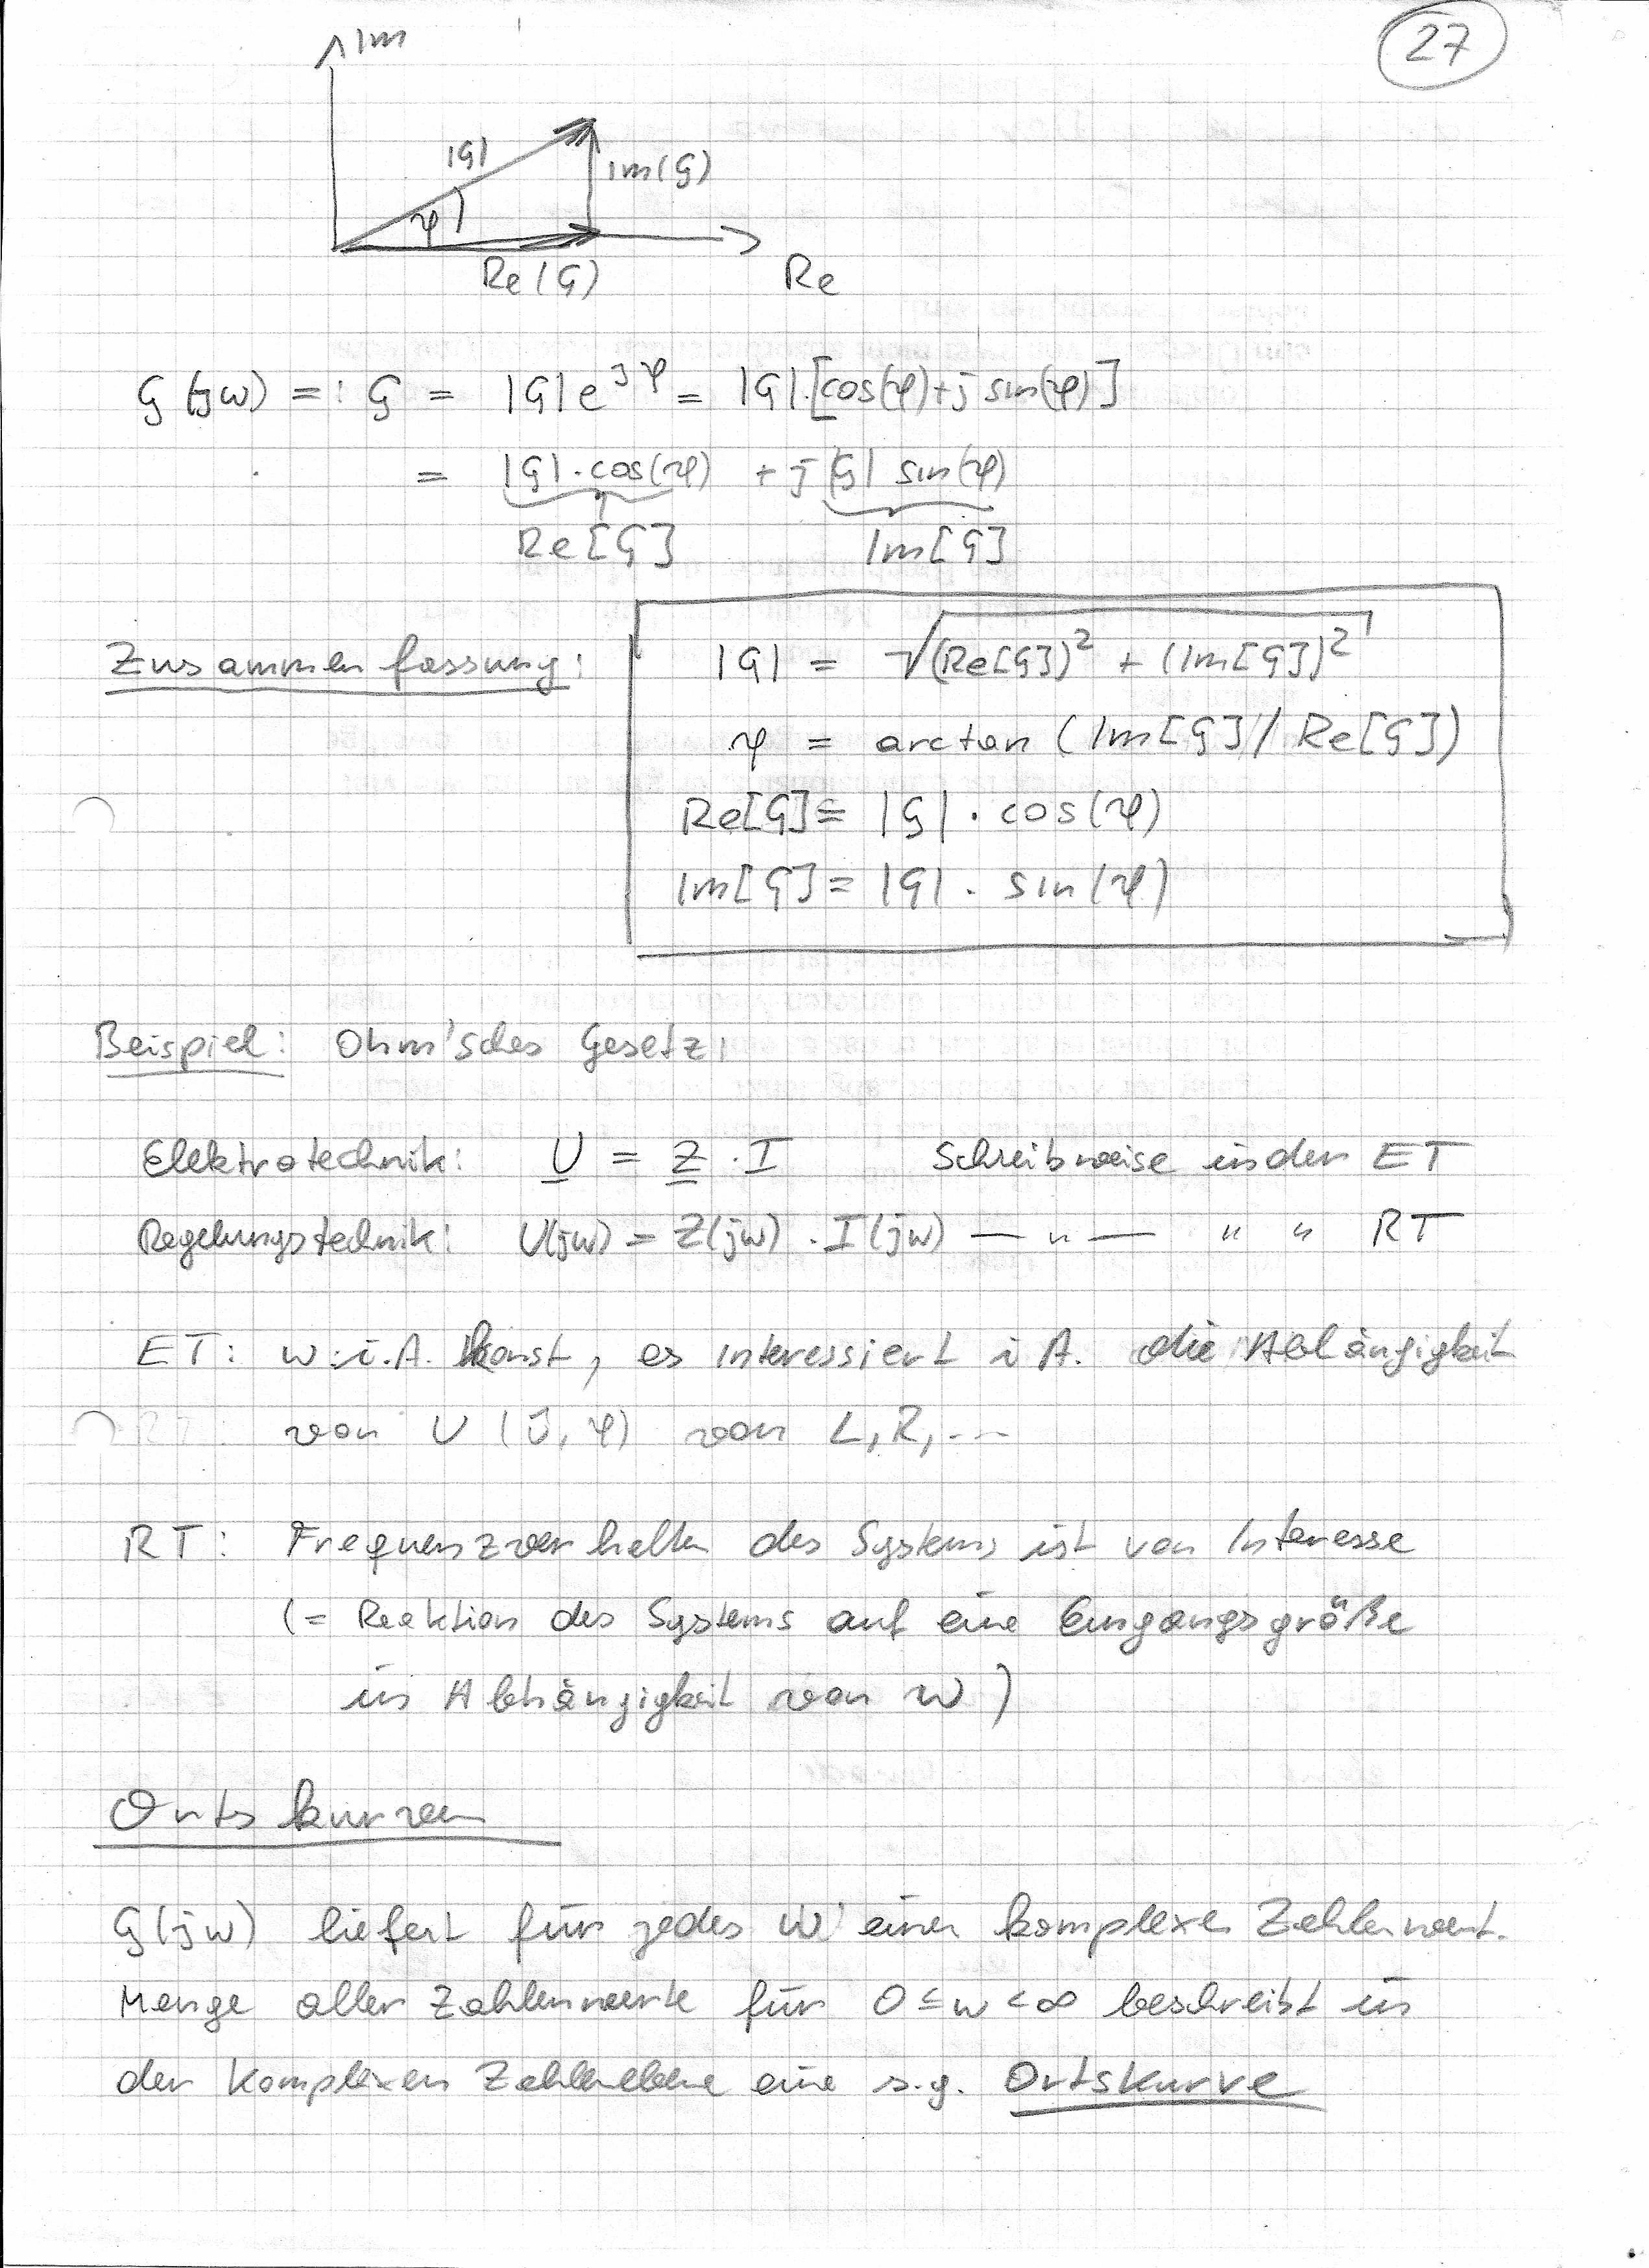 27
Im
|G|
Im(G)
φ
Re(G)
Re
G(jω) =: G = |G|e^jφ = |G|·[cos(φ)+j sin(φ)]
= |G|·cos(φ) + j|G| sin(φ)
Re[G] Im[G]
Zusammenfassung: |G| = √(Re[G])² + (Im[G])²
φ = arctan (Im[G] / Re[G])
Re[G] = |G| · cos(φ)
Im[G] = |G| · sin(φ)
Beispiel: Ohm'sches Gesetz:
Elektrotechnik: U = Z · I Schreibweise in der ET
Regelungstechnik: U(jω) = Z(jω) · I(jω) — " — " " RT
ET: ω i.A. konst, es interessiert i A. die Abhängigkeit
von U (Û, φ) von L, R, ...
RT: Frequenzverhalten des Systems ist von Interesse
(= Reaktion des Systems auf eine Eingangsgröße
in Abhängigkeit von ω)
Ortskurven
G(jω) liefert für jedes ω einen komplexen Zahlenwert.
Menge aller Zahlenwerte für 0 ≤ ω < ∞ beschreibt in
der komplexen Zahlenebene eine s.g. Ortskurve